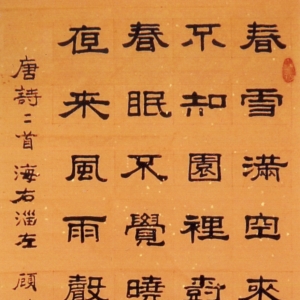 春雪滿空來
不知園裡樹
春眠不覺曉
夜来風雨聲
唐詩二首 海右淄左 顧